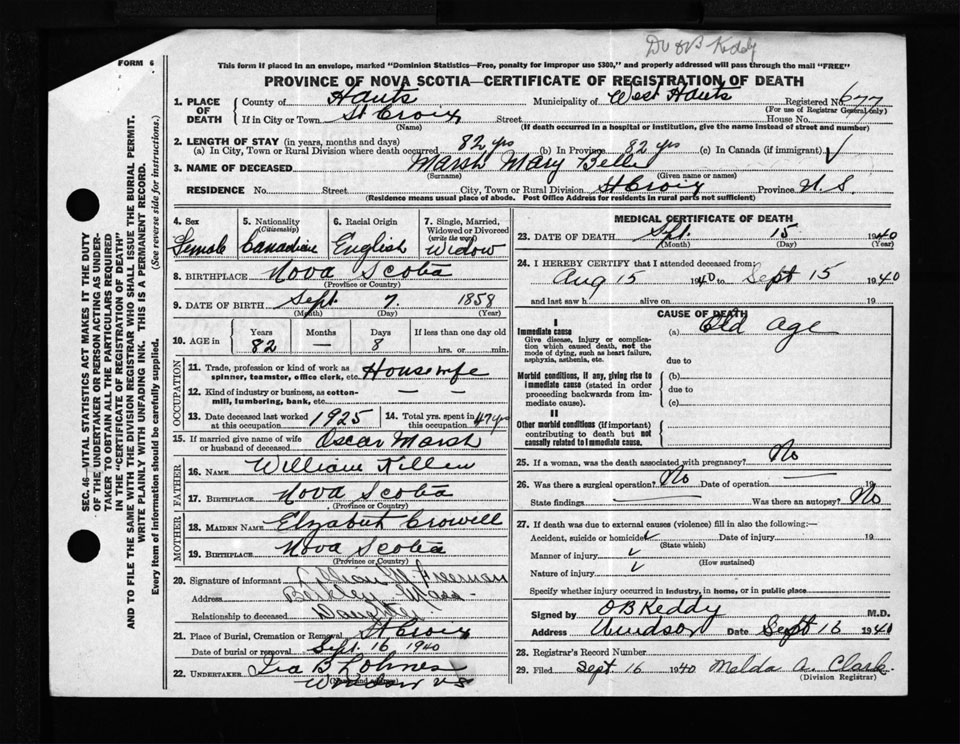 Dr O B Keddy
FORM 6
This form if placed in an envelope, marked "Dominion Statistics—Free, penalty for improper use $300," and properly addressed will pass through the mail "FREE"
PROVINCE OF NOVA SCOTIA—CERTIFICATE OF REGISTRATION OF DEATH
1. PLACE OF DEATH County of Hants Municipality of West Hants Registered No. 677
(For use of Registrar General only)
If in City or Town St Croix Street House No.
(Name) (If death occurred in a hospital or institution, give the name instead of street and number)
2. LENGTH OF STAY (in years, months and days)
(a) In City, Town or Rural Division where death occurred 82 yrs (b) In Province 82 yrs (c) In Canada (if immigrant) ✓
3. NAME OF DECEASED Marsh Mary Belle
(Surname) (Given name or names)
RESIDENCE No. Street City, Town or Rural Division St Croix Province N. S
(Residence means usual place of abode. Post Office Address for residents in rural parts not sufficient)
4. Sex Female
5. Nationality (Citizenship) Canadian
6. Racial Origin English
7. Single, Married, Widowed or Divorced (write the word) Widow
8. BIRTHPLACE Nova Scotia
(Province or Country)
9. DATE OF BIRTH Sept. 7. 1858
(Month) (Day) (Year)
10. AGE in Years 82 Months — Days 8 If less than one day old hrs. or min.
OCCUPATION
11. Trade, profession or kind of work as spinner, teamster, office clerk, etc. Housewife
12. Kind of industry or business, as cotton-mill, lumbering, bank, etc. —
13. Date deceased last worked at this occupation 1925
14. Total yrs. spent in 47 yrs
15. If married give name of wife or husband of deceased Oscar Marsh
FATHER
16. NAME William Killen
17. BIRTHPLACE Nova Scotia
(Province or Country)
MOTHER
18. MAIDEN NAME Elizabeth Crowell
19. BIRTHPLACE Nova Scotia
(Province or Country)
20. Signature of informant M. Freeman
Address Mass.
Relationship to deceased Daughter
21. Place of Burial, Cremation or Removal St Croix
Date of burial or removal Sept. 16 1940
22. UNDERTAKER Ira B Lohnes
Windsor N S
MEDICAL CERTIFICATE OF DEATH
23. DATE OF DEATH Sept. 15 1940
(Month) (Day) (Year)
24. I HEREBY CERTIFY that I attended deceased from:
Aug 15 1940 to Sept 15 1940
and last saw h alive on 19
CAUSE OF DEATH
I
Immediate cause (a) Old Age
Give disease, injury or complication which caused death, not the mode of dying, such as heart failure, asphyxia, asthenia, etc.
due to
Morbid conditions, if any, giving rise to immediate cause (stated in order proceeding backwards from immediate cause).
(b)
due to
(c)
II
Other morbid conditions (if important) contributing to death but not causally related to immediate cause.
25. If a woman, was the death associated with pregnancy? No
26. Was there a surgical operation? No Date of operation —
State findings — Was there an autopsy? No
27. If death was due to external causes (violence) fill in also the following:—
Accident, suicide or homicide ✓ Date of injury 19
(State which)
Manner of injury ✓
(How sustained)
Nature of injury ✓
Specify whether injury occurred in industry, in home, or in public place
Signed by O B Keddy M.D.
Address Windsor Date Sept 16 1940
28. Registrar's Record Number
29. Filed Sept 16 1940 Melda A. Clark
(Division Registrar)
SEC. 46—VITAL STATISTICS ACT MAKES IT THE DUTY
OF THE UNDERTAKER OR PERSON ACTING AS UNDER-
TAKER TO OBTAIN ALL THE PARTICULARS REQUIRED
IN THE "CERTIFICATE OF REGISTRATION OF DEATH"
AND TO FILE THE SAME WITH THE DIVISION REGISTRAR WHO SHALL ISSUE THE BURIAL PERMIT.
WRITE PLAINLY WITH UNFADING INK. THIS IS A PERMANENT RECORD.
Every item of Information should be carefully supplied. (See reverse side for instructions.)